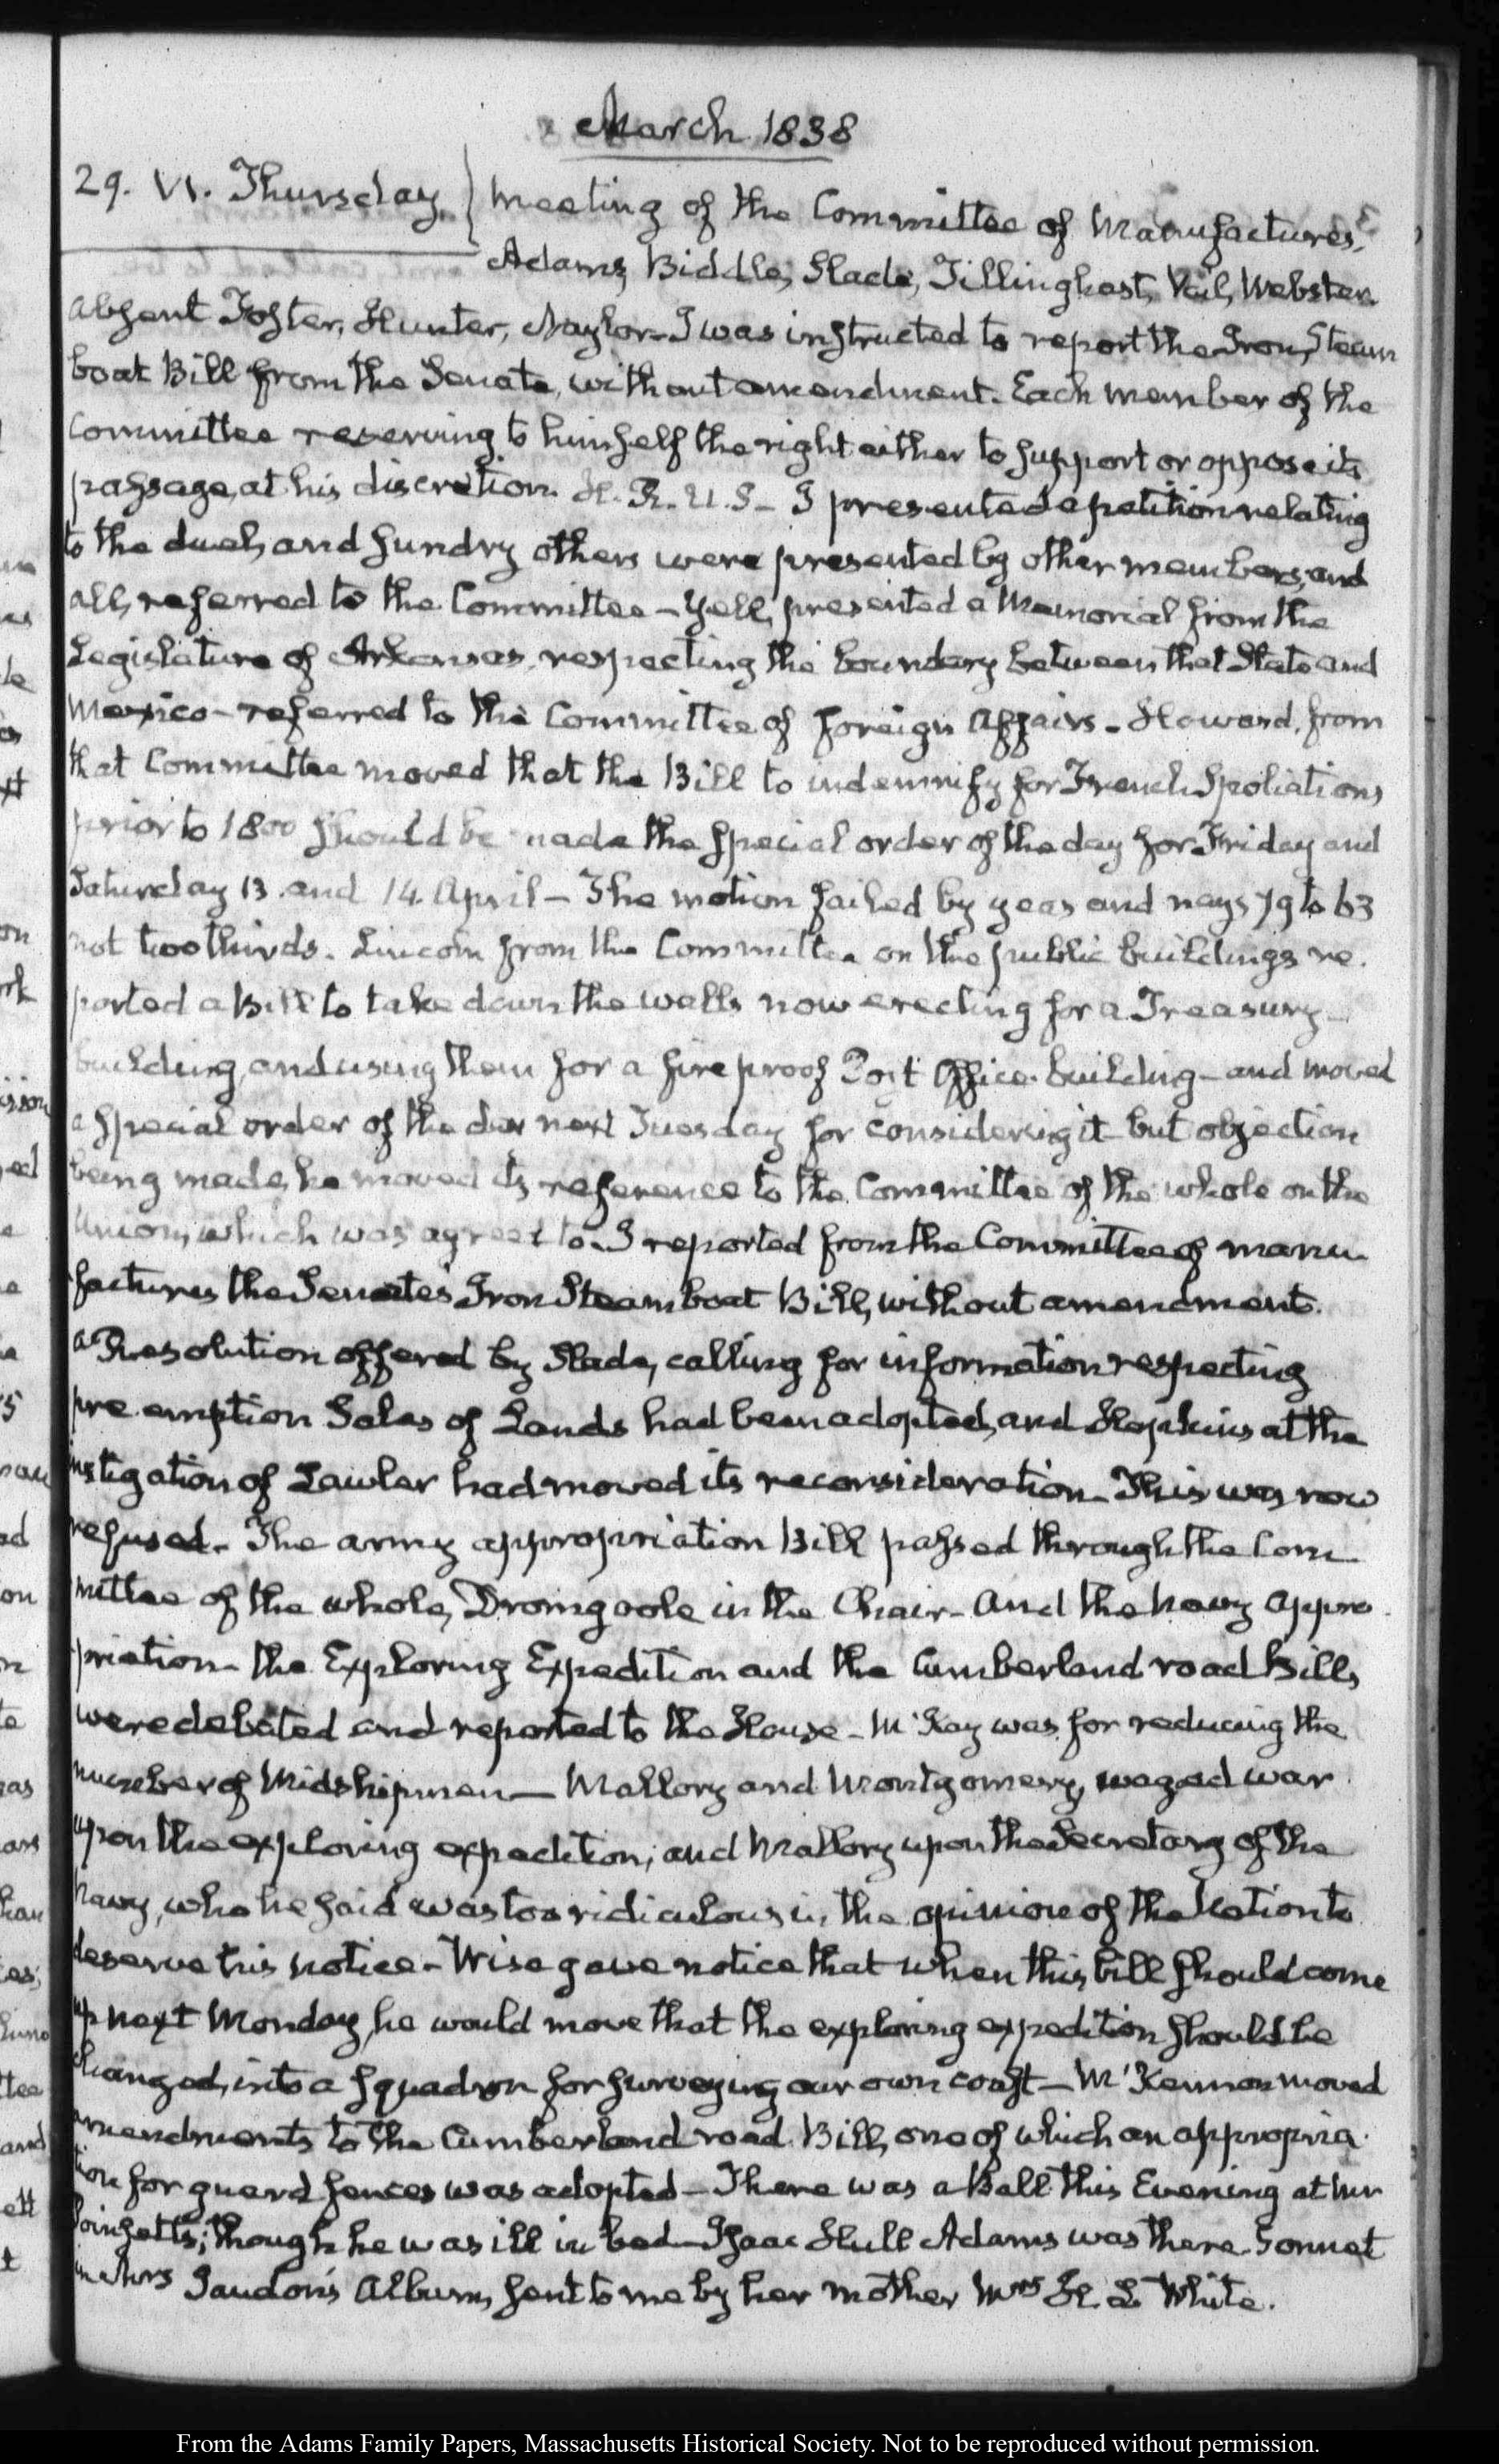 March 1838
29. VI. Thursday } Meeting of the Committee of Manufactures,
Adams, Biddle, Slade, Tillinghast, Vail, Webster.
absent Foster, Hunter, Naylor. I was instructed to report the Iron, Steam
boat Bill from the Senate, without amendment. Each member of the
Committee reserving to himself the right either to support or oppose its
passage, at his discretion. H.R.U.S - I presented a petition relating
to the duel, and sundry others were presented by other members, and
all, referred to the Committee - Yell, presented a Memorial from the
Legislature of Arkansas, respecting the boundary between that State and
Mexico - referred to the Committee of foreign Affairs - Howard, from
that Committee moved that the Bill to indemnify for French Spoliations
prior to 1800 should be made the special order of the day for Friday and
Saturday 13. and 14. April - The motion failed by yeas and nays 79 to 63
not two thirds. Lincoln from the Committee on the public buildings re.
ported a Bill to take down the walls now erecting for a Treasury
building, and using them for a fire proof Post Office. building - and moved
a special order of the day next Tuesday for considering it but objection
being made, he moved its reference to the Committee of the whole on the
Union, which was agreed to. I reported from the Committee of manu
factures the Senate's Iron Steam boat Bill, without amendment.
a Resolution offered by Slade, calling for information respecting
pre emption Sales of Lands had been adopted, and Hopkins at the
instigation of Lawler had moved its reconsideration - This was now
refused. The army appropriation Bill passed through the Com
mittee of the whole, Dromgoole in the Chair - and the navy appro
priation - the Exploring Expedition and the Cumberland road Bills
were debated and reported to the House - McKay was for reducing the
number of Midshipmen - Mallory and Montgomery, waged war
upon the exploring expedition; and Mallory upon the Secretary of the
navy, who he said was too ridiculous in the opinion of the Nation to
deserve his notice - Wise gave notice that when this bill should come
up next Monday, he would move that the exploring expedition should be
changed, into a squadron for surveying our own coast - McKennan moved
amendments to the Cumberland road Bill, one of which an appropria
tion for guard fences was adopted - There was a Ball this Evening at Mr
Poinsett's; though he was ill in bed - Isaac Hull Adams was there. Sonnet
in Mrs Jaudon's Album, sent to me by her mother Mrs H. L. White.
From the Adams Family Papers, Massachusetts Historical Society. Not to be reproduced without permission.